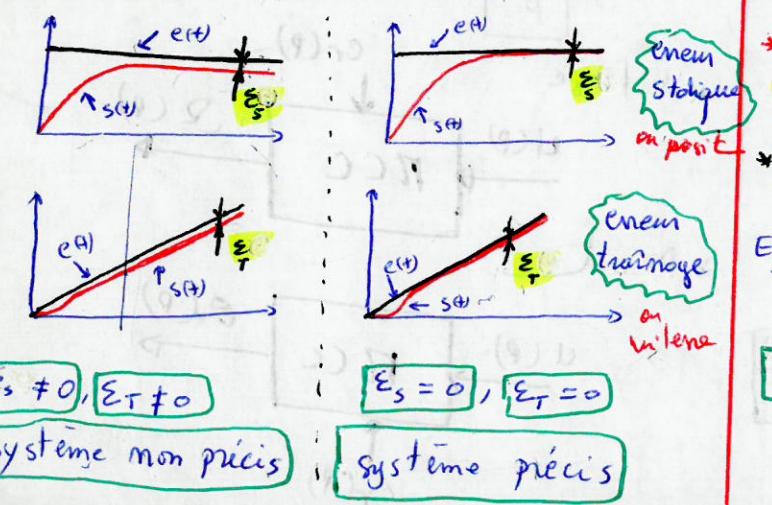 e(t)
s(t)
εs
e(t)
s(t)
εs
erreur
statique
ou posit
*
*
e(t)
s(t)
εT
e(t)
s(t)
εT
erreur
traînage
ou
vitesse
E
εs ≠ 0, εT ≠ 0
εs = 0, εT = 0
système non précis
système précis